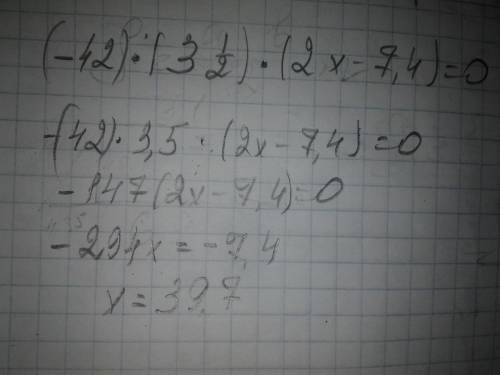 (-42)·(3 1/2)·(2x-7,4)=0
-(42)·3,5·(2x-7,4)=0
-147(2x-7,4)=0
-294x=-7,4
x=39,7